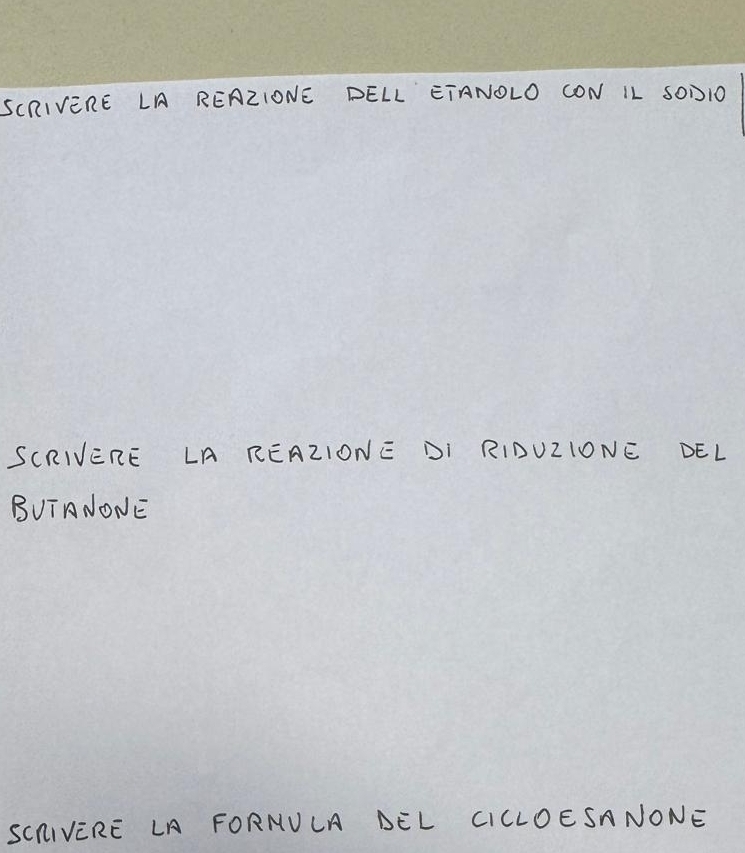 SCRIVERE LA REAZIONE DELL' ETANOLO CON IL SODIO
SCRIVERE LA REAZIONE DI RIDUZIONE DEL
BUTANONE
SCRIVERE LA FORMULA DEL CICLOESANONE